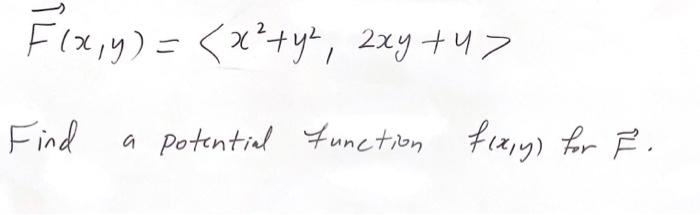 F⃗(x,y) = <x²+y², 2xy+4>
Find a potential function f(x,y) for F⃗.